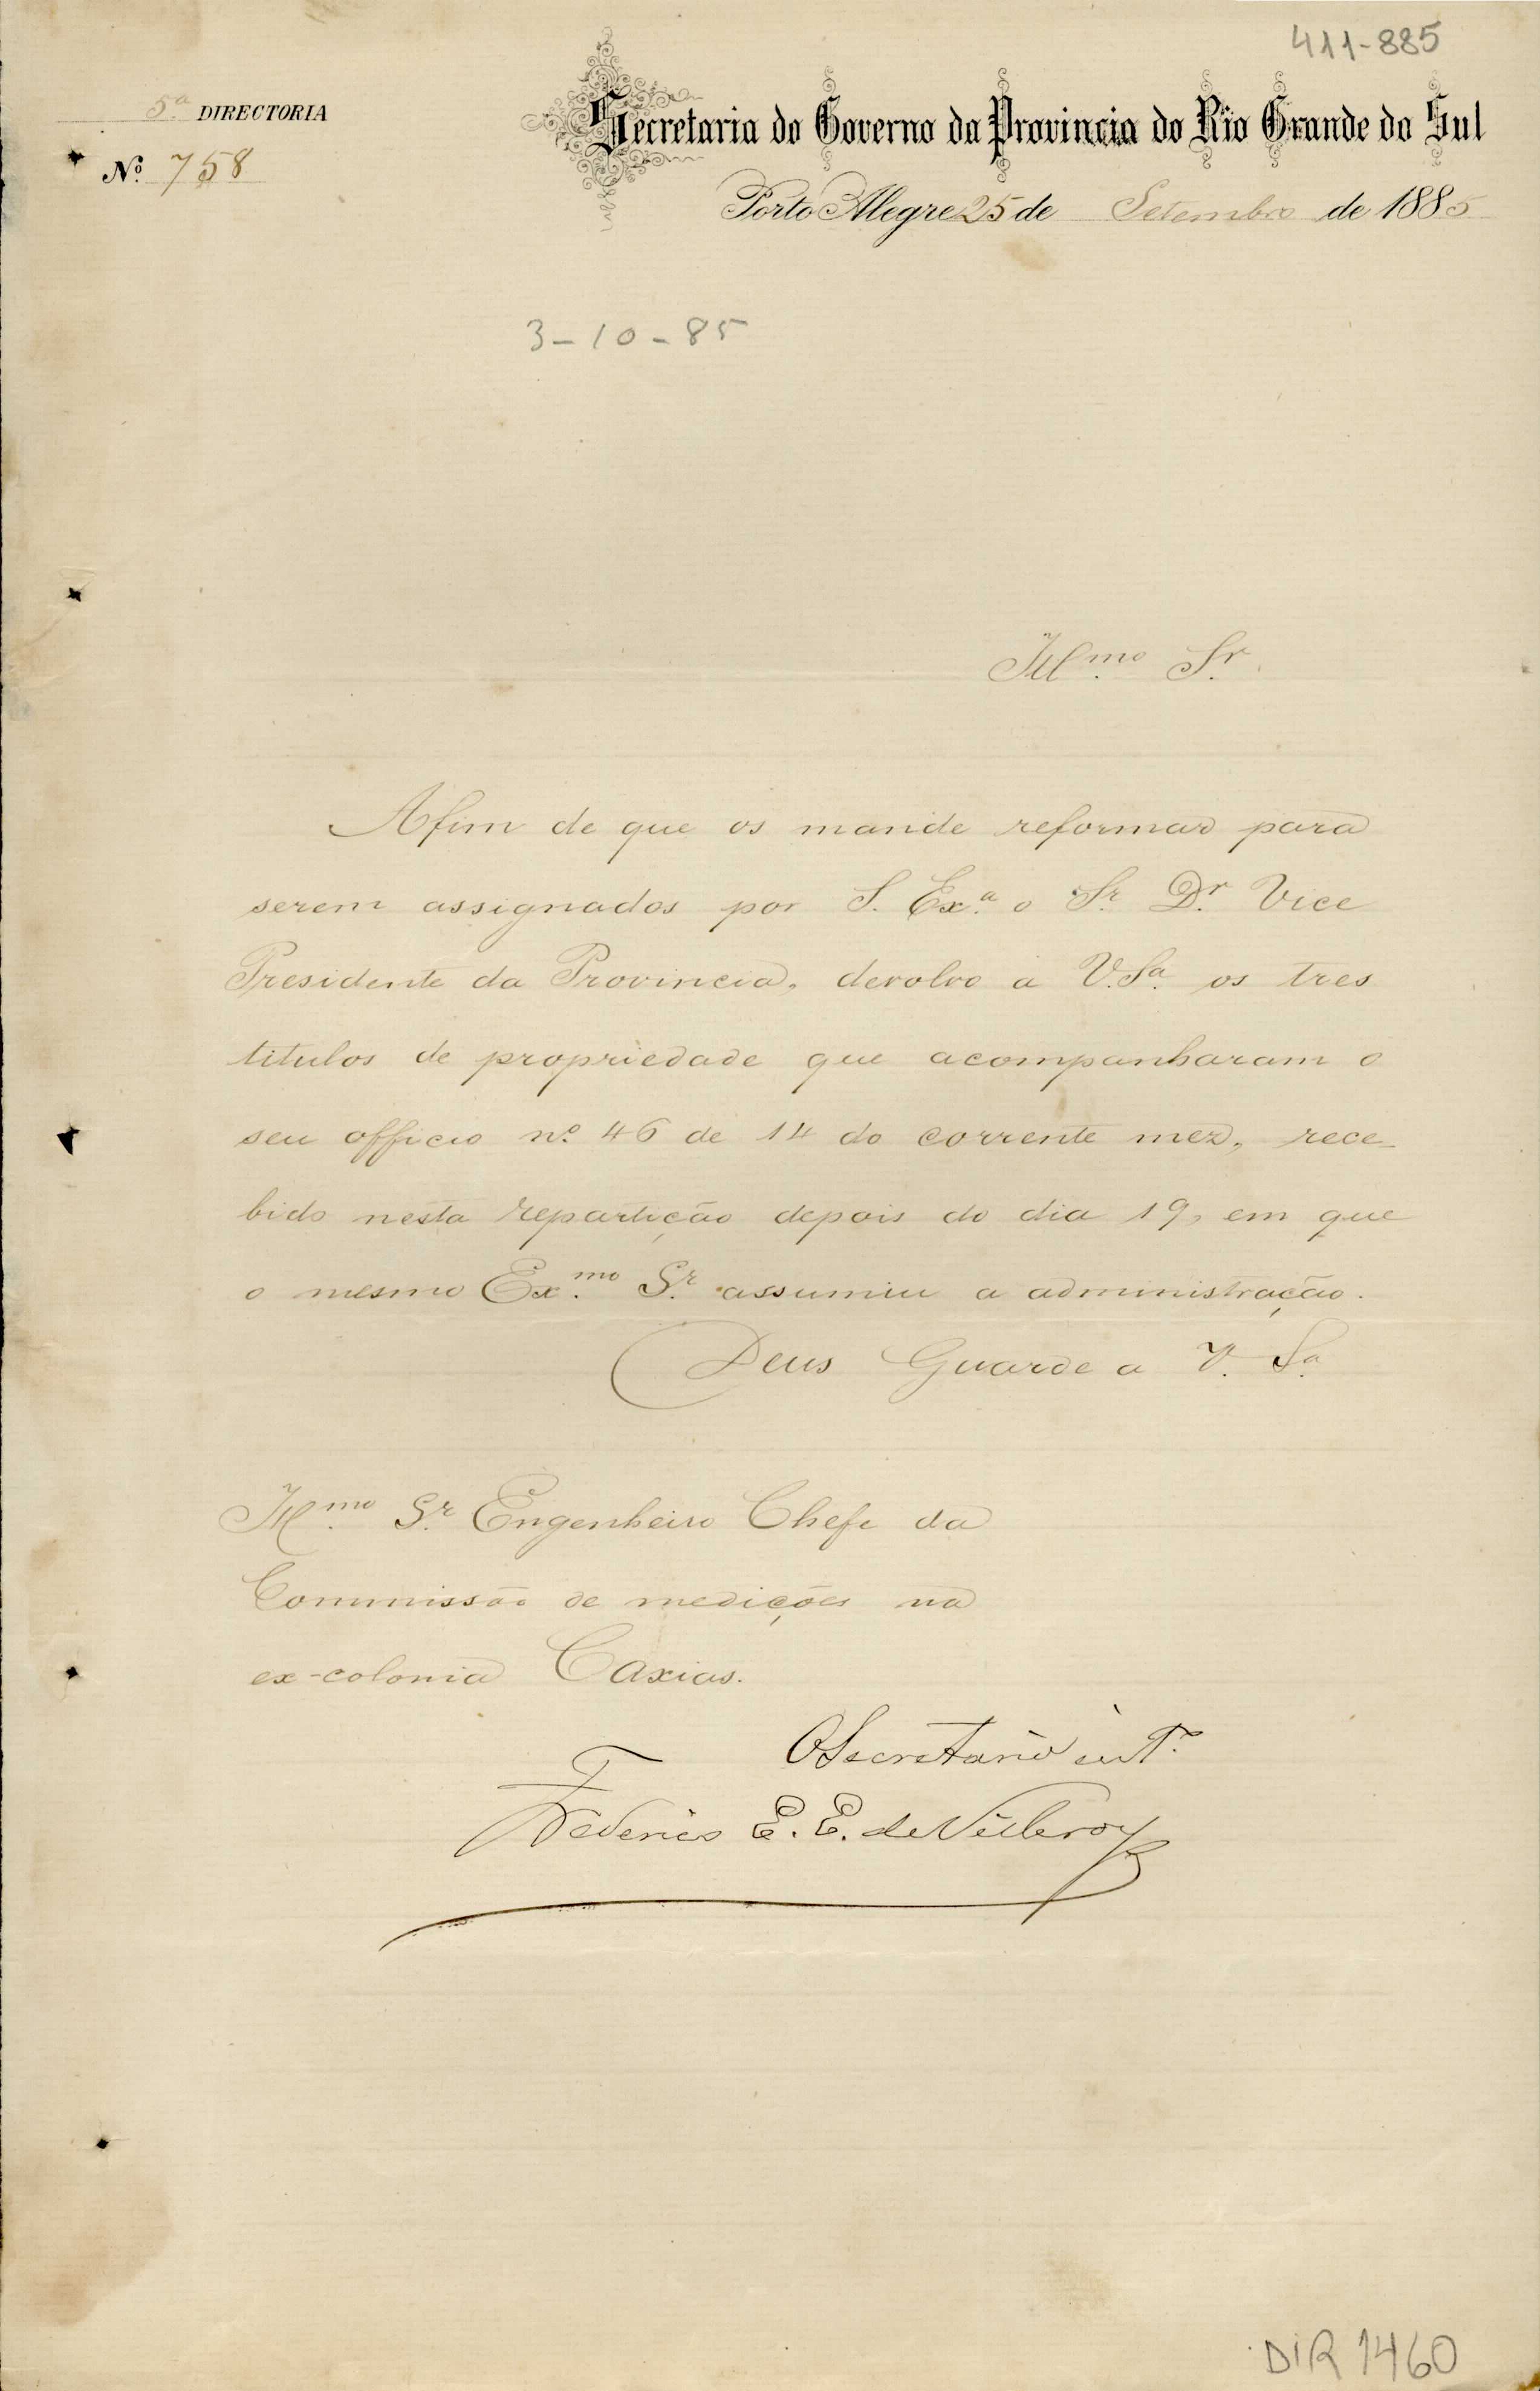 411-885
5ª DIRECTORIA
Secretaria do Governo da Provincia do Rio Grande do Sul
Nº 758
Porto Alegre 25 de Setembro de 1885
3-10-85
Illmo. Sr.
Afim de que os mande reformar para
serem assignados por S. Exª. o Sr. Dr. Vice
Presidente da Provincia, devolvo a V. Sª. os tres
titulos de propriedade que acompanharam o
seu officio nº 46 de 14 do corrente mez, rece-
bido nesta repartição depois do dia 19, em que
o mesmo Exmo. Sr. assumiu a administração.
Deus Guarde a V. Sª.
Illmo. Sr. Engenheiro Chefe da
Commissão de medições na
ex-colonia Caxias.
O Secretario intº
Federico E. E. de Villeroy
DIR 1460